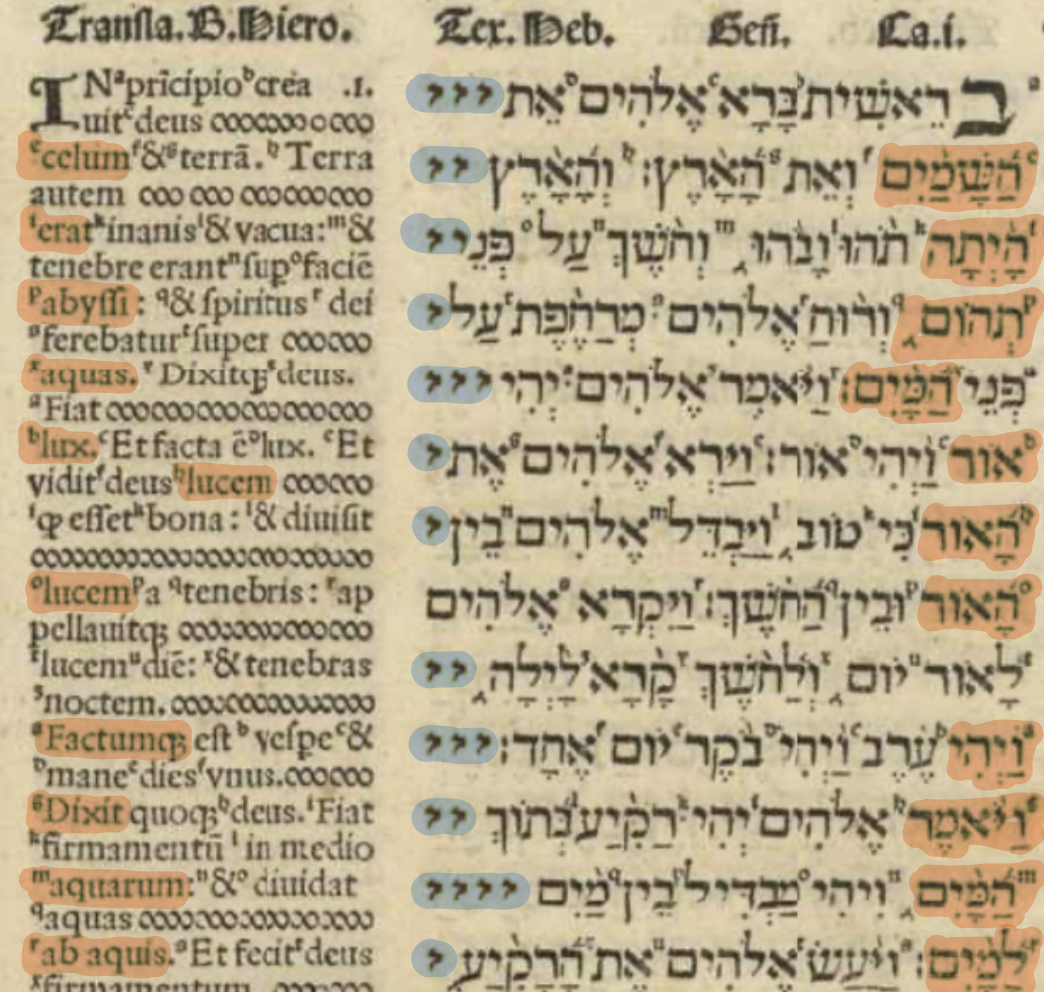 Transla.B.Hiero.
INᵃpricipioᵇcrea .1.
uitᶜdeus
ᵉcelumᶠ&ᵍterrā.ʰTerra
autem
ⁱeratᵏinanisˡ&vacua:ᵐ&
tenebre erantⁿsupᵒfaciē
ᵖabyssi: ᑫ& spiritusʳ dei
ˢferebaturᵗsuper
ˣaquas. Dixitqꝫ deus.
ᵃFiat
ᵇlux.ᶜEt facta ē lux. ᵉEt
viditᶠdeusʰlucem
ⁱꝙ essetᵏbona:ˡ& diuisit
ᵒlucemᵖa ᑫtenebris: ʳap
pellauitqꝫ
ᵗlucemᵘdiē: ˣ& tenebras
noctem.
ᵃFactumqꝫ estᵇ vespeᶜ&
ᵈmaneᵉdiesᶠvnus.
ᵍDixit quoqꝫʰdeus.ⁱFiat
ᵏfirmamentūˡin medio
ᵐaquarum:ⁿ&ᵒ diuidat
ᑫaquas
ʳab aquis.ˢEt fecitᵗdeus
ˣfirmamentum
Tex. Heb. Gen̄. Ca.i.
בראשית ברא אלהים את
השמים ואת הארץ: והארץ
היתה תהו ובהו וחשך על פני
תהום ורוח אלהים מרחפת על
פני המים: ויאמר אלהים יהי
אור ויהי אור: וירא אלהים את
האור כי טוב ויבדל אלהים בין
האור ובין החשך: ויקרא אלהים
לאור יום ולחשך קרא לילה
ויהי ערב ויהי בקר יום אחד:
ויאמר אלהים יהי רקיע בתוך
המים ויהי מבדיל בין מים
למים: ויעש אלהים את הרקיע